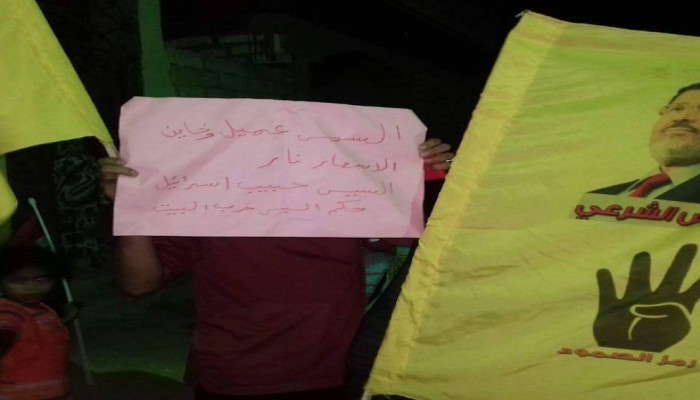 السيسي عميل وخاين
الاسعار نار
السيسي حبيب اسرائيل
حكم السيسي خرب البيت
الشرعي
رمز الصمود